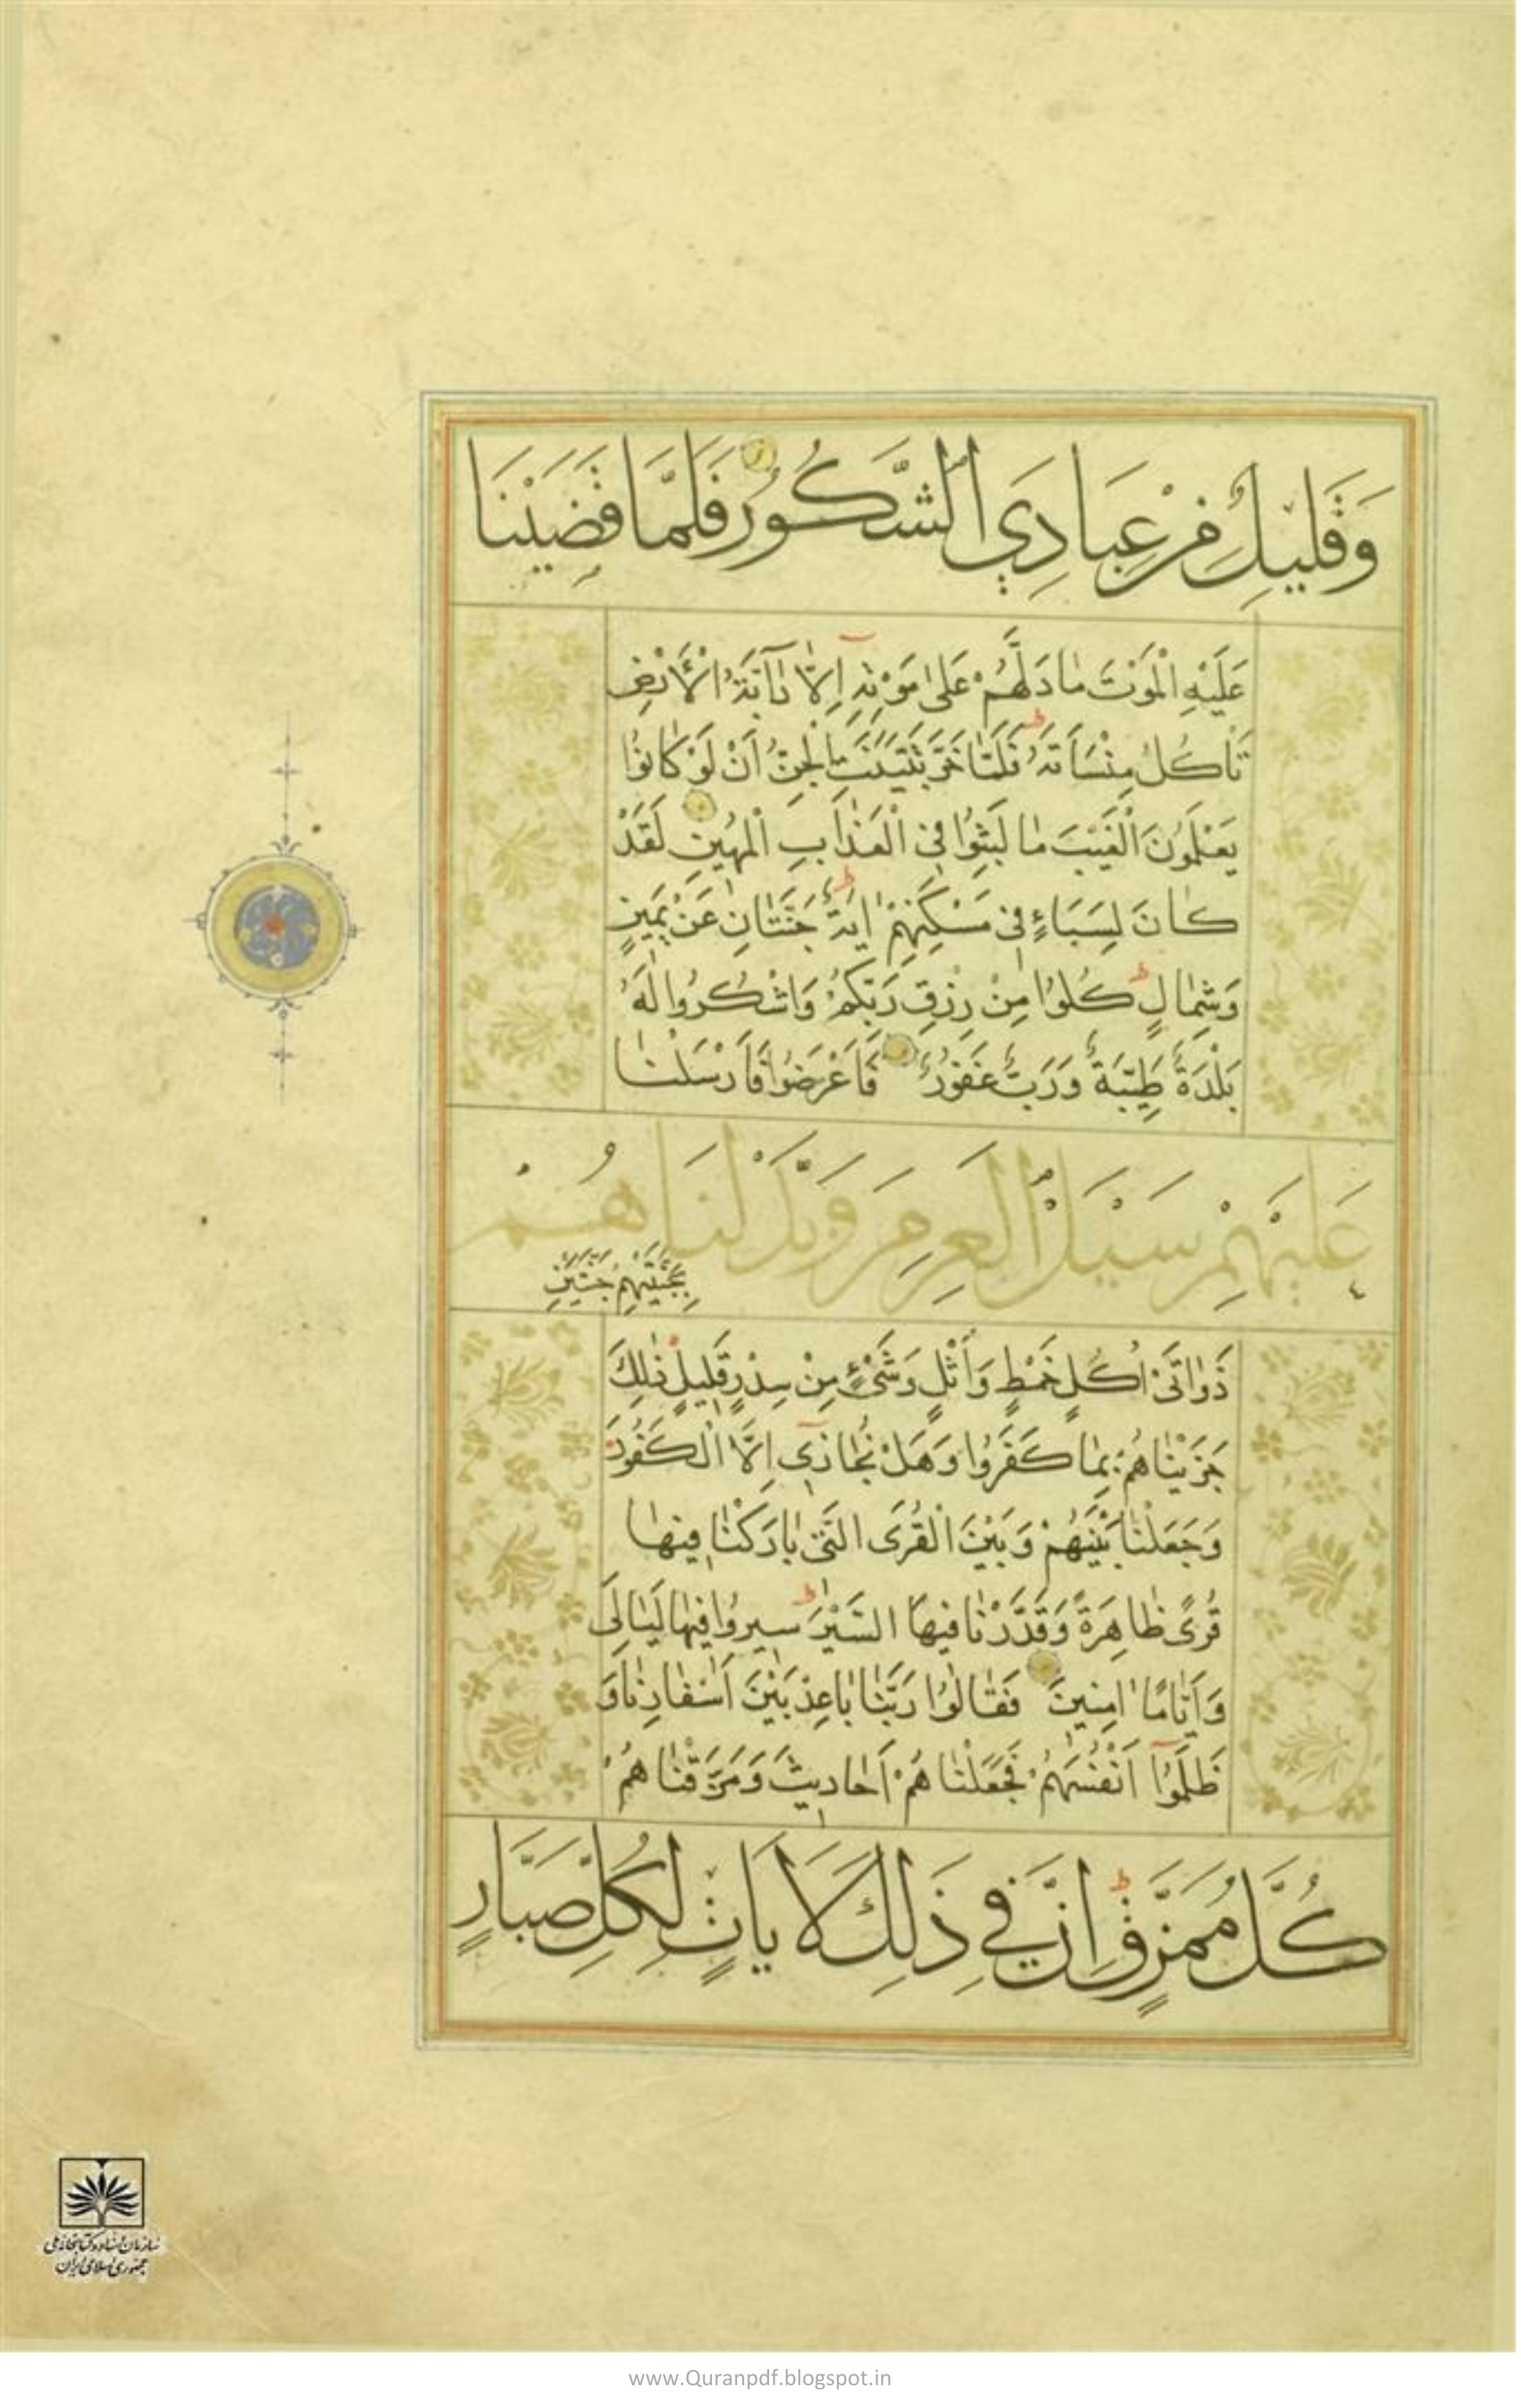 وَقَلِيلٌ مِنْ عِبَادِيَ الشَّكُورُ فَلَمَّا قَضَيْنَا
عَلَيْهِ الْمَوْتَ مَا دَلَّهُمْ عَلَىٰ مَوْتِهِ إِلَّا دَآبَّةُ الْأَرْضِ
تَأْكُلُ مِنْسَأَتَهُ فَلَمَّا خَرَّ تَبَيَّنَتِ الْجِنُّ أَنْ لَوْ كَانُوا
يَعْلَمُونَ الْغَيْبَ مَا لَبِثُوا فِي الْعَذَابِ الْمُهِينِ لَقَدْ
كَانَ لِسَبَإٍ فِي مَسْكَنِهِمْ اٰيَةٌ جَنَّتَانِ عَنْ يَمِينٍ
وَشِمَالٍ كُلُوا مِنْ رِزْقِ رَبِّكُمْ وَاشْكُرُوا لَهُ
بَلْدَةٌ طَيِّبَةٌ وَرَبٌّ غَفُورٌ فَأَعْرَضُوا فَأَرْسَلْنَا
عَلَيْهِمْ سَيْلَ الْعَرِمِ وَبَدَّلْنَاهُمْ
بِجَنَّتَيْهِمْ جَنَّتَيْنِ
ذَوَاتَيْ أُكُلٍ خَمْطٍ وَأَثْلٍ وَشَيْءٍ مِنْ سِدْرٍ قَلِيلٍ ذٰلِكَ
جَزَيْنَاهُمْ بِمَا كَفَرُوا وَهَلْ نُجَازِي إِلَّا الْكَفُورَ
وَجَعَلْنَا بَيْنَهُمْ وَبَيْنَ الْقُرَى الَّتِي بَارَكْنَا فِيهَا
قُرًى ظَاهِرَةً وَقَدَّرْنَا فِيهَا السَّيْرَ سِيرُوا فِيهَا لَيَالِيَ
وَأَيَّامًا اٰمِنِينَ فَقَالُوا رَبَّنَا بَاعِدْ بَيْنَ أَسْفَارِنَا وَ
ظَلَمُوا أَنْفُسَهُمْ فَجَعَلْنَاهُمْ أَحَادِيثَ وَمَزَّقْنَاهُمْ
كُلَّ مُمَزَّقٍ إِنَّ فِي ذَلِكَ لَاَيَاتٍ لِكُلِّ صَبَّارٍ
سازمان اسناد و کتابخانه ملی
جمهوری اسلامی ایران
www.Quranpdf.blogspot.in